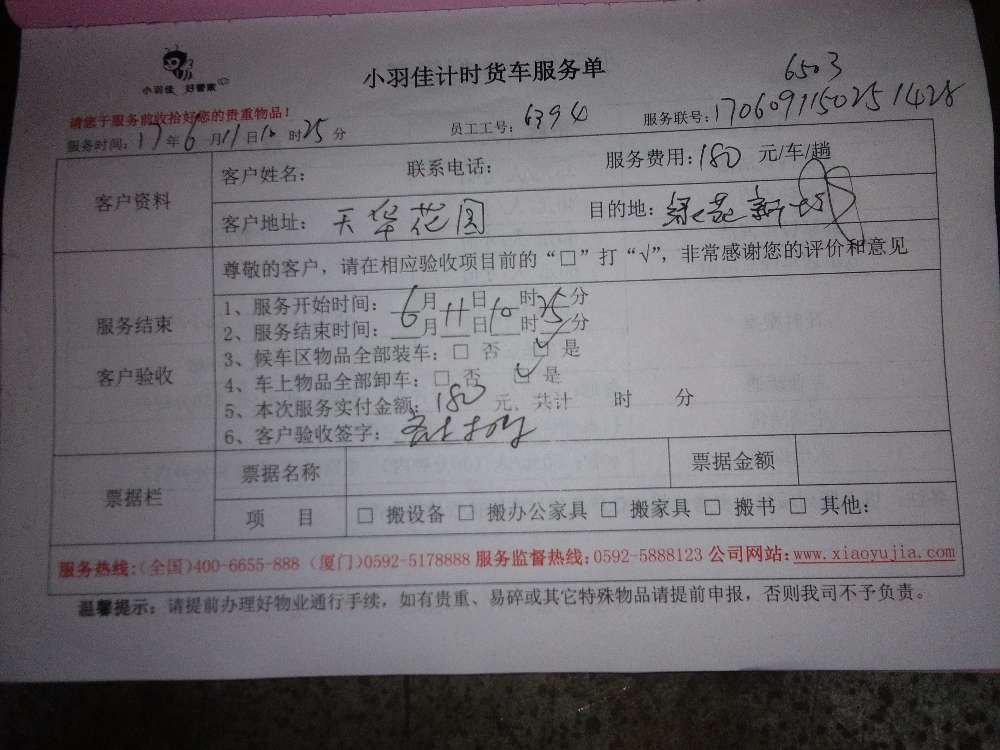 小羽佳 好管家
小羽佳计时货车服务单
6503
请您于服务前收拾好您的贵重物品!
服务时间: 17年6月11日10时25分 员工工号: 6394 服务联号: 170609115025 1428
客户资料
客户姓名: 联系电话: 服务费用: 180 元/车/趟
客户地址: 天华花园 目的地:
服务结束
客户验收
尊敬的客户,请在相应验收项目前的“□”打“√”,非常感谢您的评价和意见
1、服务开始时间: 6月11日10时25分
2、服务结束时间: 月 日 时 分
3、候车区物品全部装车: □ 否 ☑ 是
4、车上物品全部卸车: □ 否 ☑ 是
5、本次服务实付金额: 180 元,共计 时 分
6、客户验收签字:
票据栏
票据名称 票据金额
项 目 □ 搬设备 □ 搬办公家具 □ 搬家具 □ 搬书 □ 其他:
服务热线:(全国)400-6655-888 (厦门)0592-5178888 服务监督热线:0592-5888123 公司网站:www.xiaoyujia.com
温馨提示: 请提前办理好物业通行手续,如有贵重、易碎或其它特殊物品请提前申报,否则我司不予负责。